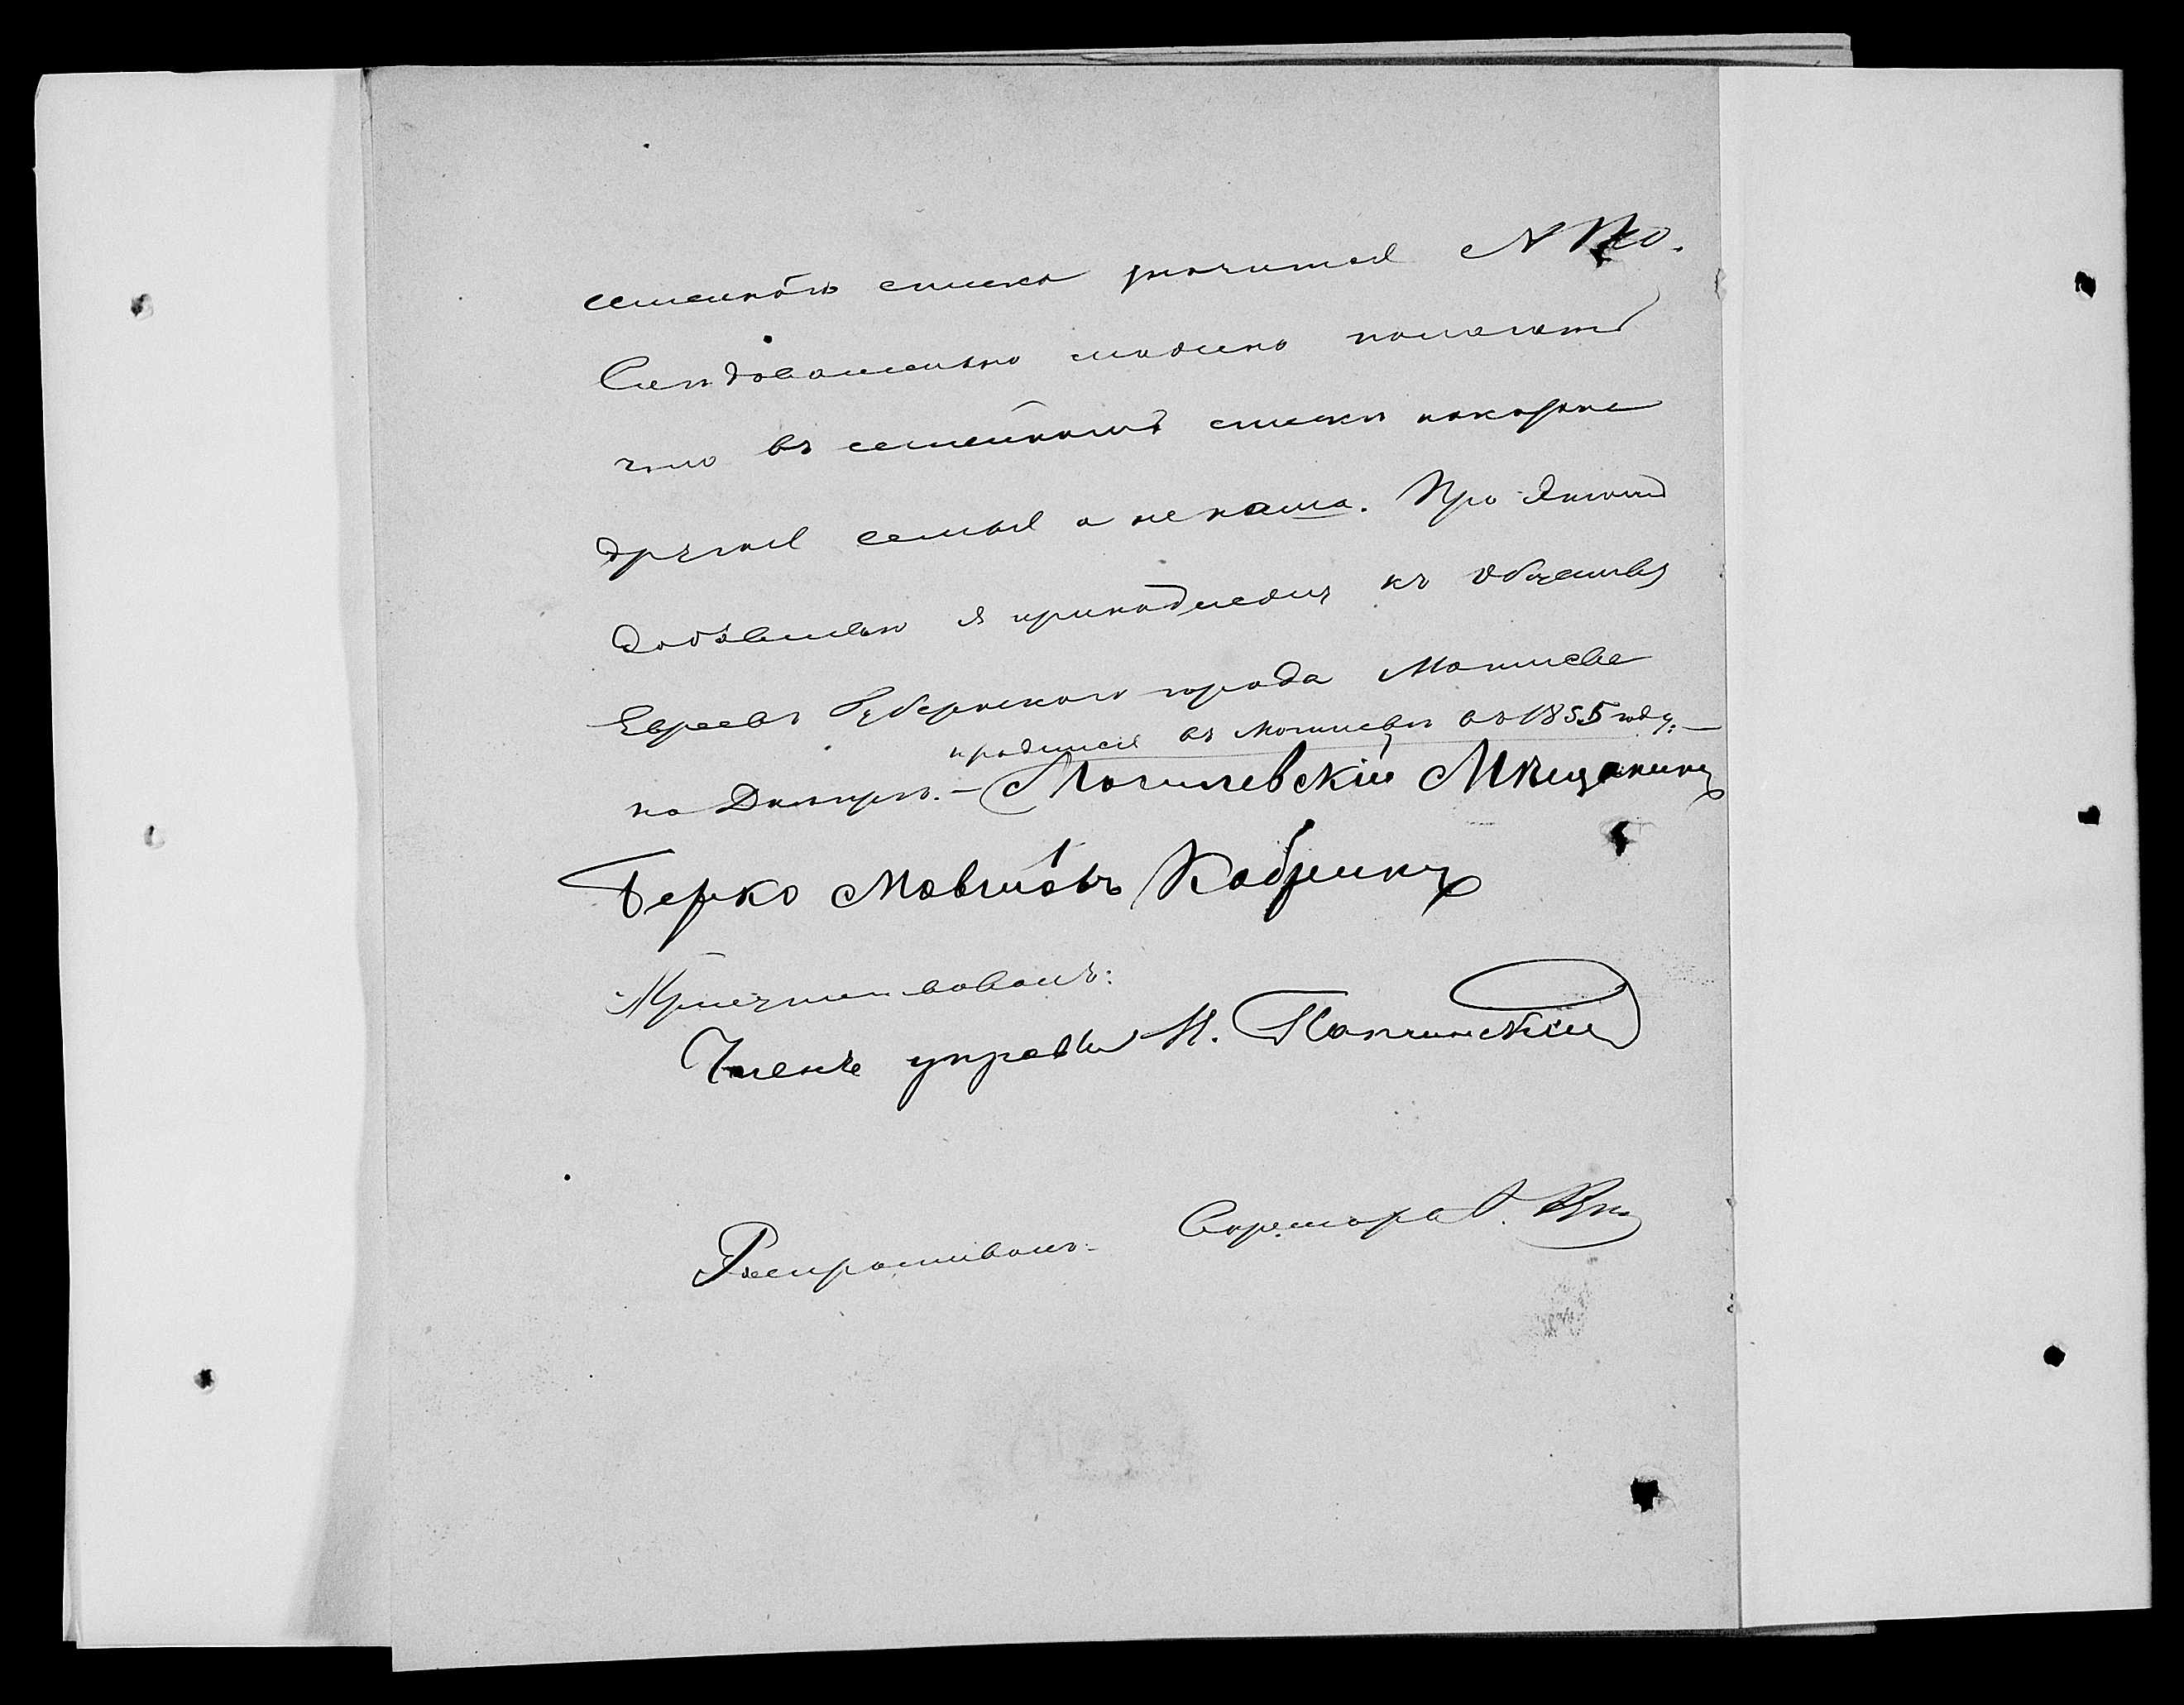 семейномъ списке значится №
Следовательно можно полагать
что въ семейномъ списке показана
другая семья а не наша. При этомъ
добавляю я принадлежу къ обществу
Евреевъ Губернскаго города Могилева
и родился въ Могилеве въ 1855 году. —
на Днепре. — Могилевскій Мещанинъ
Берко Мовшовъ Кобринъ
Присутствовалъ:
Членъ управы Н.
Распрашивалъ: